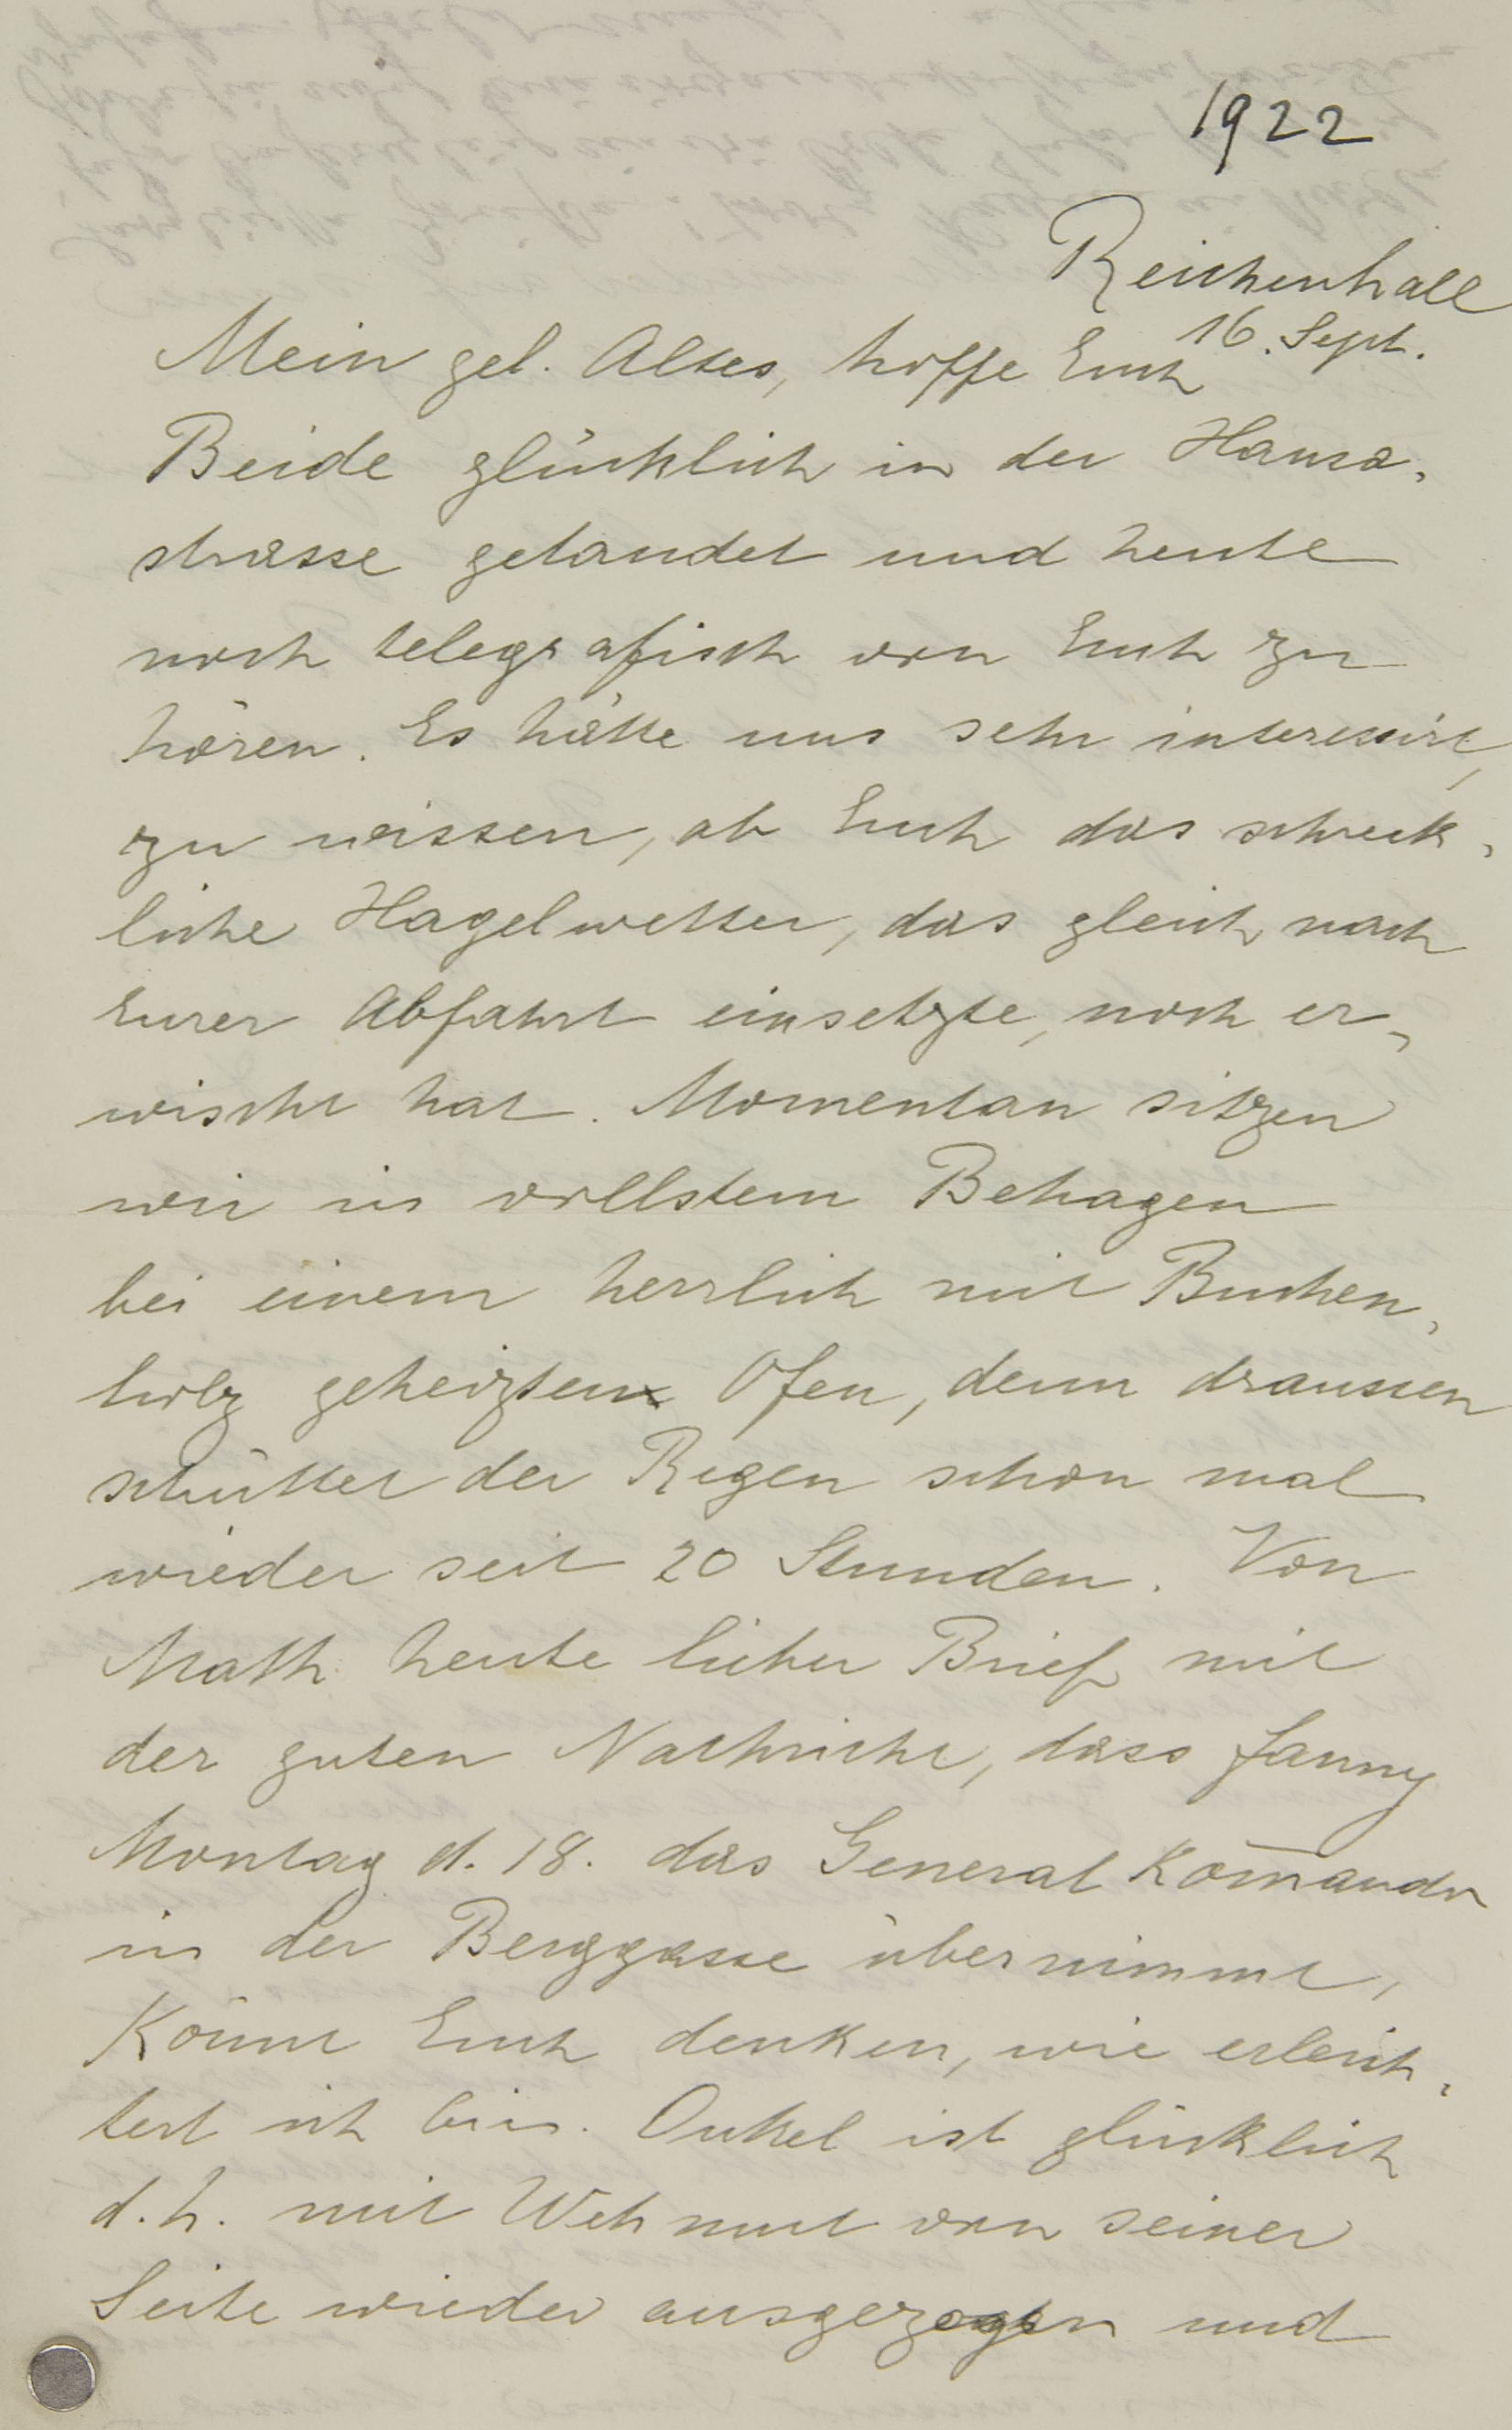 1922
Reichenhall
16. Sept.
Mein gel. Altes, hoffe Euch
Beide glücklich in der Hansa-
strasse gelandet und heute
noch telegrafisch von Euch zu
hören. Es hätte uns sehr interessirt,
zu wissen, ob Euch das schreck-
liche Hagelwetter, das gleich nach
Eurer Abfahrt einsetzte, noch er-
wischt hat. Momentan sitzen
wir in vollstem Behagen
bei einem herrlich mit Buchen-
holz geheizten Ofen, denn draussen
schüttet der Regen schon mal
wieder seit 20 Stunden. Von
Math. heute lieber Brief mit
der guten Nachricht, dass Fanny
Montag d. 18. das General Kom̄ando
in der Berggasse übernimmt,
Könnt Euch denken, wie erleich-
tert ich bin. Onkel ist glücklich
d. h. mit Wehmut von seiner
Seite wieder ausgezogen und